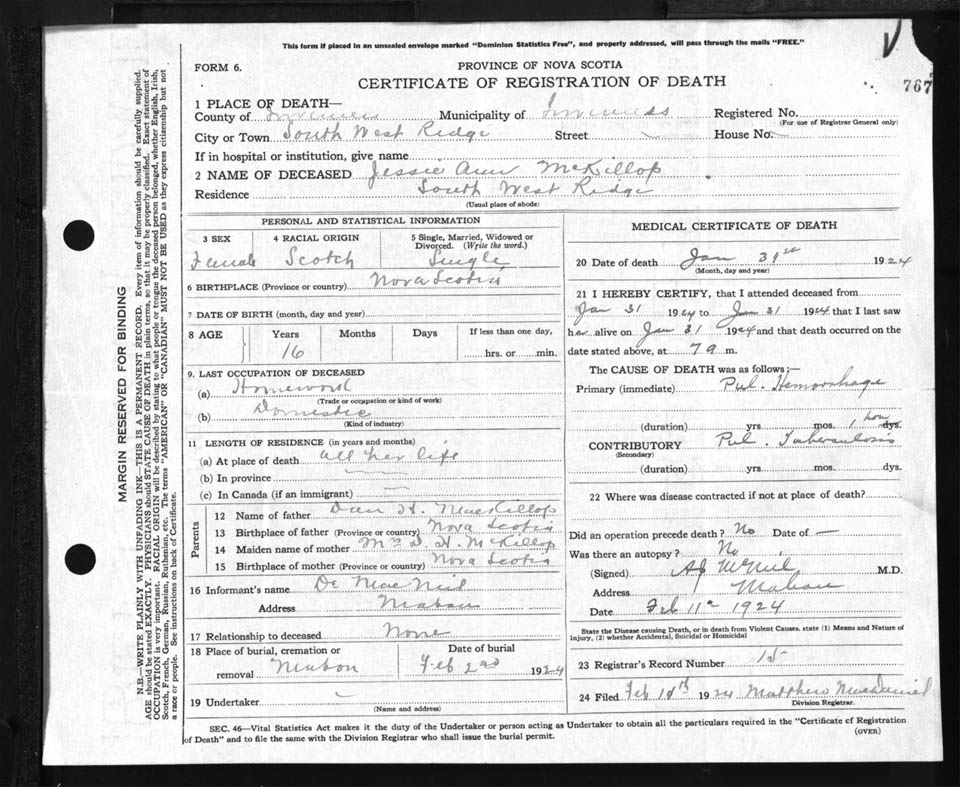 This form if placed in an unsealed envelope marked "Dominion Statistics Free", and properly addressed, will pass through the mails "FREE."
FORM 6.
PROVINCE OF NOVA SCOTIA
CERTIFICATE OF REGISTRATION OF DEATH
767
1 PLACE OF DEATH—
County of Inverness Municipality of Inverness Registered No.
(For use of Registrar General only)
City or Town South West Ridge Street House No.
If in hospital or institution, give name
2 NAME OF DECEASED Jessie Ann McKillop
Residence South West Ridge
(Usual place of abode)
PERSONAL AND STATISTICAL INFORMATION
3 SEX 4 RACIAL ORIGIN 5 Single, Married, Widowed or Divorced. (Write the word.)
Female Scotch Single
6 BIRTHPLACE (Province or country) Nova Scotia
7 DATE OF BIRTH (month, day and year)
8 AGE Years Months Days If less than one day,
16 hrs. or min.
9. LAST OCCUPATION OF DECEASED
(a) Homework
(Trade or occupation or kind of work)
(b) Domestic
(Kind of industry)
11 LENGTH OF RESIDENCE (in years and months)
(a) At place of death all her life
(b) In province
(c) In Canada (if an immigrant)
Parents
12 Name of father Dan H. MacKillop
13 Birthplace of father (Province or country) Nova Scotia
14 Maiden name of mother Mrs D. H. McKillop
15 Birthplace of mother (Province or country) Nova Scotia
16 Informant's name Dr MacNeil
Address Mabou
17 Relationship to deceased None
18 Place of burial, cremation or removal Mabou
Date of burial Feb 2nd 1924
19 Undertaker
(Name and address)
MEDICAL CERTIFICATE OF DEATH
20 Date of death Jan 31st 1924
(Month, day and year)
21 I HEREBY CERTIFY, that I attended deceased from
Jan 31 1924 to Jan 31 1924 that I last saw
her alive on Jan 31 1924 and that death occurred on
date stated above, at 7 a m.
The CAUSE OF DEATH was as follows;—
Primary (immediate) Pul. Hemorrhage
(duration) yrs. mos. 1 hour dys.
CONTRIBUTORY Pul. Tuberculosis
(Secondary)
(duration) yrs. mos. dys.
22 Where was disease contracted if not at place of death?
Did an operation precede death? No Date of —
Was there an autopsy? No
(Signed) McNeil M.D.
Address Mabou
Date Feb 11th 1924
State the Disease causing Death, or in death from Violent Causes, state (1) Means and Nature of Injury, (2) whether Accidental, Suicidal or Homicidal
23 Registrar's Record Number 15
24 Filed Feb 1924 Matthew
Division Registrar.
SEC. 46—Vital Statistics Act makes it the duty of the Undertaker or person acting as Undertaker to obtain all the particulars required in the "Certificate of Registration
of Death" and to file the same with the Division Registrar who shall issue the burial permit.
(OVER)
MARGIN RESERVED FOR BINDING
N.B.—WRITE PLAINLY WITH UNFADING INK—THIS IS A PERMANENT RECORD. Every item of information should be carefully supplied.
AGE should be stated EXACTLY. PHYSICIANS should STATE CAUSE OF DEATH in plain terms, so that it may be properly classified. Exact statement of
OCCUPATION is very important. RACIAL ORIGIN will be described by stating to what people or tongue the deceased person belonged, whether English, Irish,
Scotch, French, German, Russian, Ruthenian, etc. The terms "AMERICAN" OR "CANADIAN" MUST NOT BE USED as they express citizenship but not
a race or people. See instructions on back of Certificate.